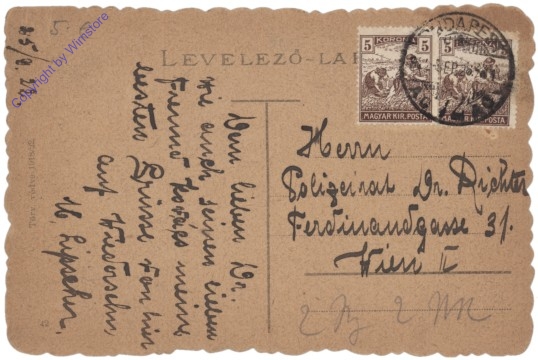 5 - 6
Copyright by Wimstore
LEVELEZŐ-LAP
5 KORONA 5
MAGYAR KIR. POSTA
KORONA 5
MAGYAR KIR. POSTA
BUDAPEST
Dem lieben Dr.
wie auch seinen lieben
Freund meine
besten Grüsse von hier
auf Wiedersehn,
Herrn
Polizeirat Dr. Richter
Ferdinandgasse 31.
Wien II